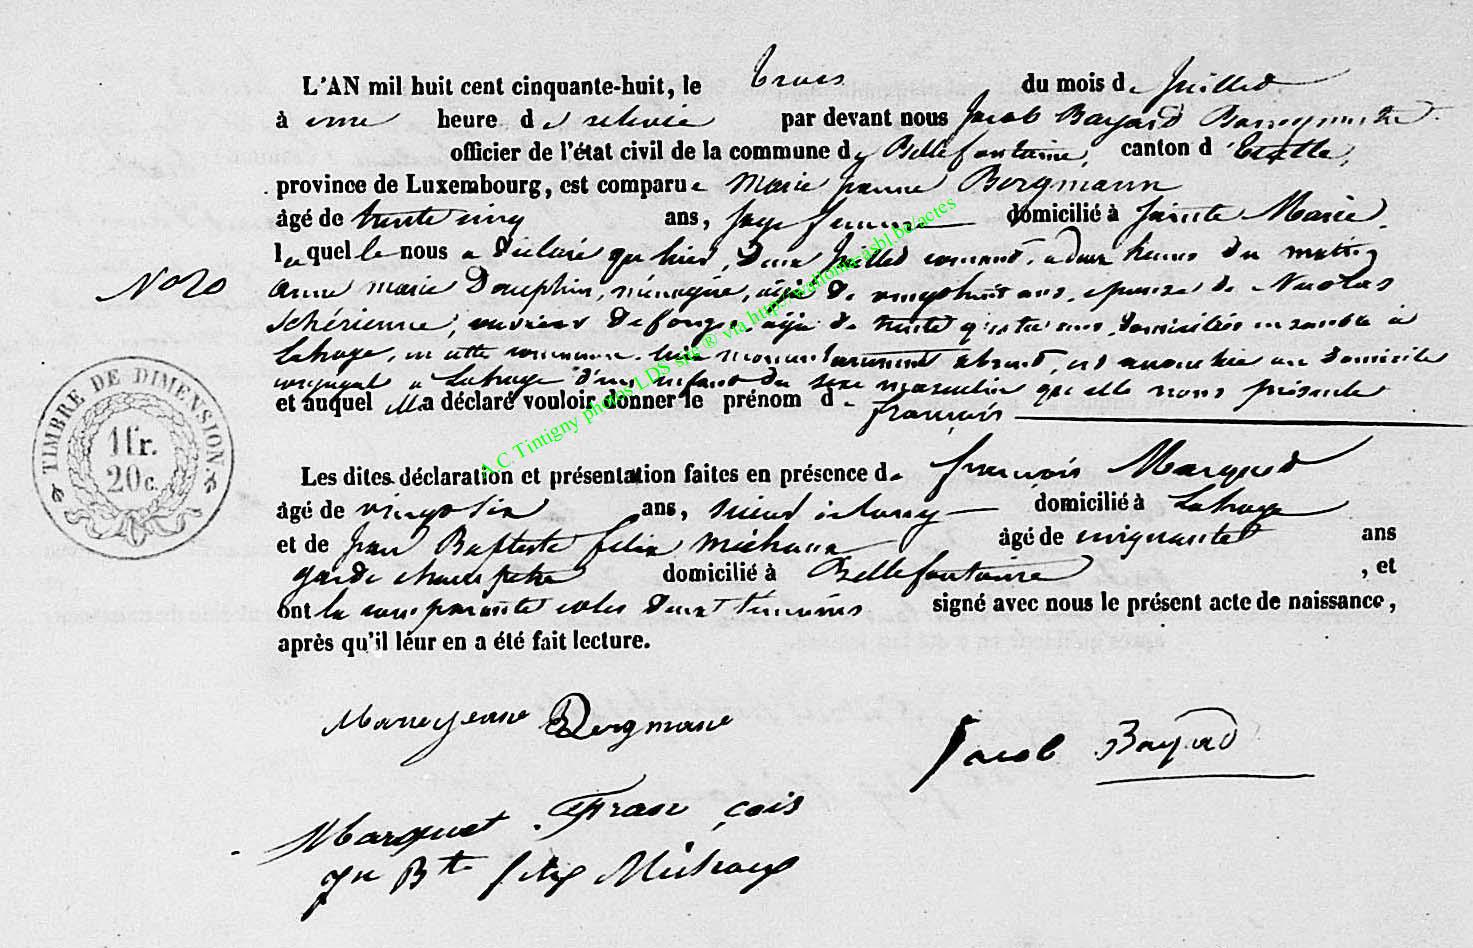 L'AN mil huit cent cinquante-huit, le trois du mois de Juillet
à une heure de relevée par devant nous Jacob Bayard Bourgmestre
officier de l'état civil de la commune de Bellefontaine, canton d'Etalle,
province de Luxembourg, est comparue Marie Jeanne Bergmann
âgé de trente cinq ans, sage femme domicilié à Sainte Marie,
laquelle nous a déclaré que hier, deux Juillet courant, à deux heures du matin,
N° 20
anne marie Dauphin, ménagère, âgée de vingt huit ans, épouse de Nicolas
Schérienne, ouvrier de forge, âgé de trente quatre ans, domiciliés ensemble à
Lahage, en cette commune, momentanément absent, est accouchée au domicile
conjugal à Lahage d'un enfant du sexe masculin qu'elle nous présente
et auquel elle a déclaré vouloir donner le prénom de françois
TIMBRE DE DIMENSION.
1 fr.
20 c.
Les dites déclaration et présentation faites en présence de françois Marquet
âgé de vingt six ans, domicilié à Lahage
et de Jean Baptiste félix Michaux âgé de cinquante ans
garde champêtre domicilié à Bellefontaine, et
ont la comparante et les deux témoins signé avec nous le présent acte de naissance,
après qu'il leur en a été fait lecture.
Marie jeanne Bergmann
Jacob Bayard
Marquet François
Jn Bte félix Michaux
A.C.Tintigny photos LDS site ® via http://wallonia.asbl.be/actes